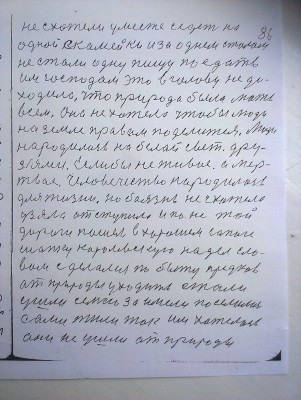 86
не схотели уместе седет на
одной скамейки и за однем столом
не стали одну пищу поедать
им господам это в голову не до-
ходило, что природа была мать
всем, она не хотела чтобы люди
на земле правам поделится, Люди
народилися на белай свет. дру-
зями. Если бы не живое, а мер-
твое. Человечество народилося
для жизни, но боязнь не схотело
узяла отступило и по не той
дороги пошел в хорошем сапоге
шапку каральскую надел сло-
вом сделался по быту предков
от природы уходить стали
ушли семею за имели поселился
сами жили так им хателося
они не ушли от природы